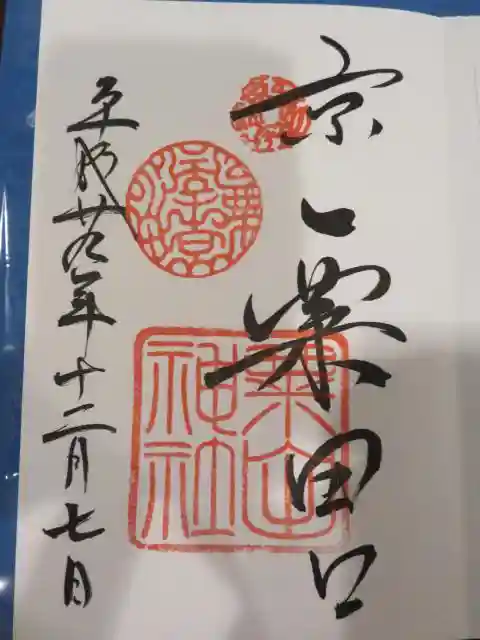 京
粟田口
粟田
神社
平成廿九年十二月七日